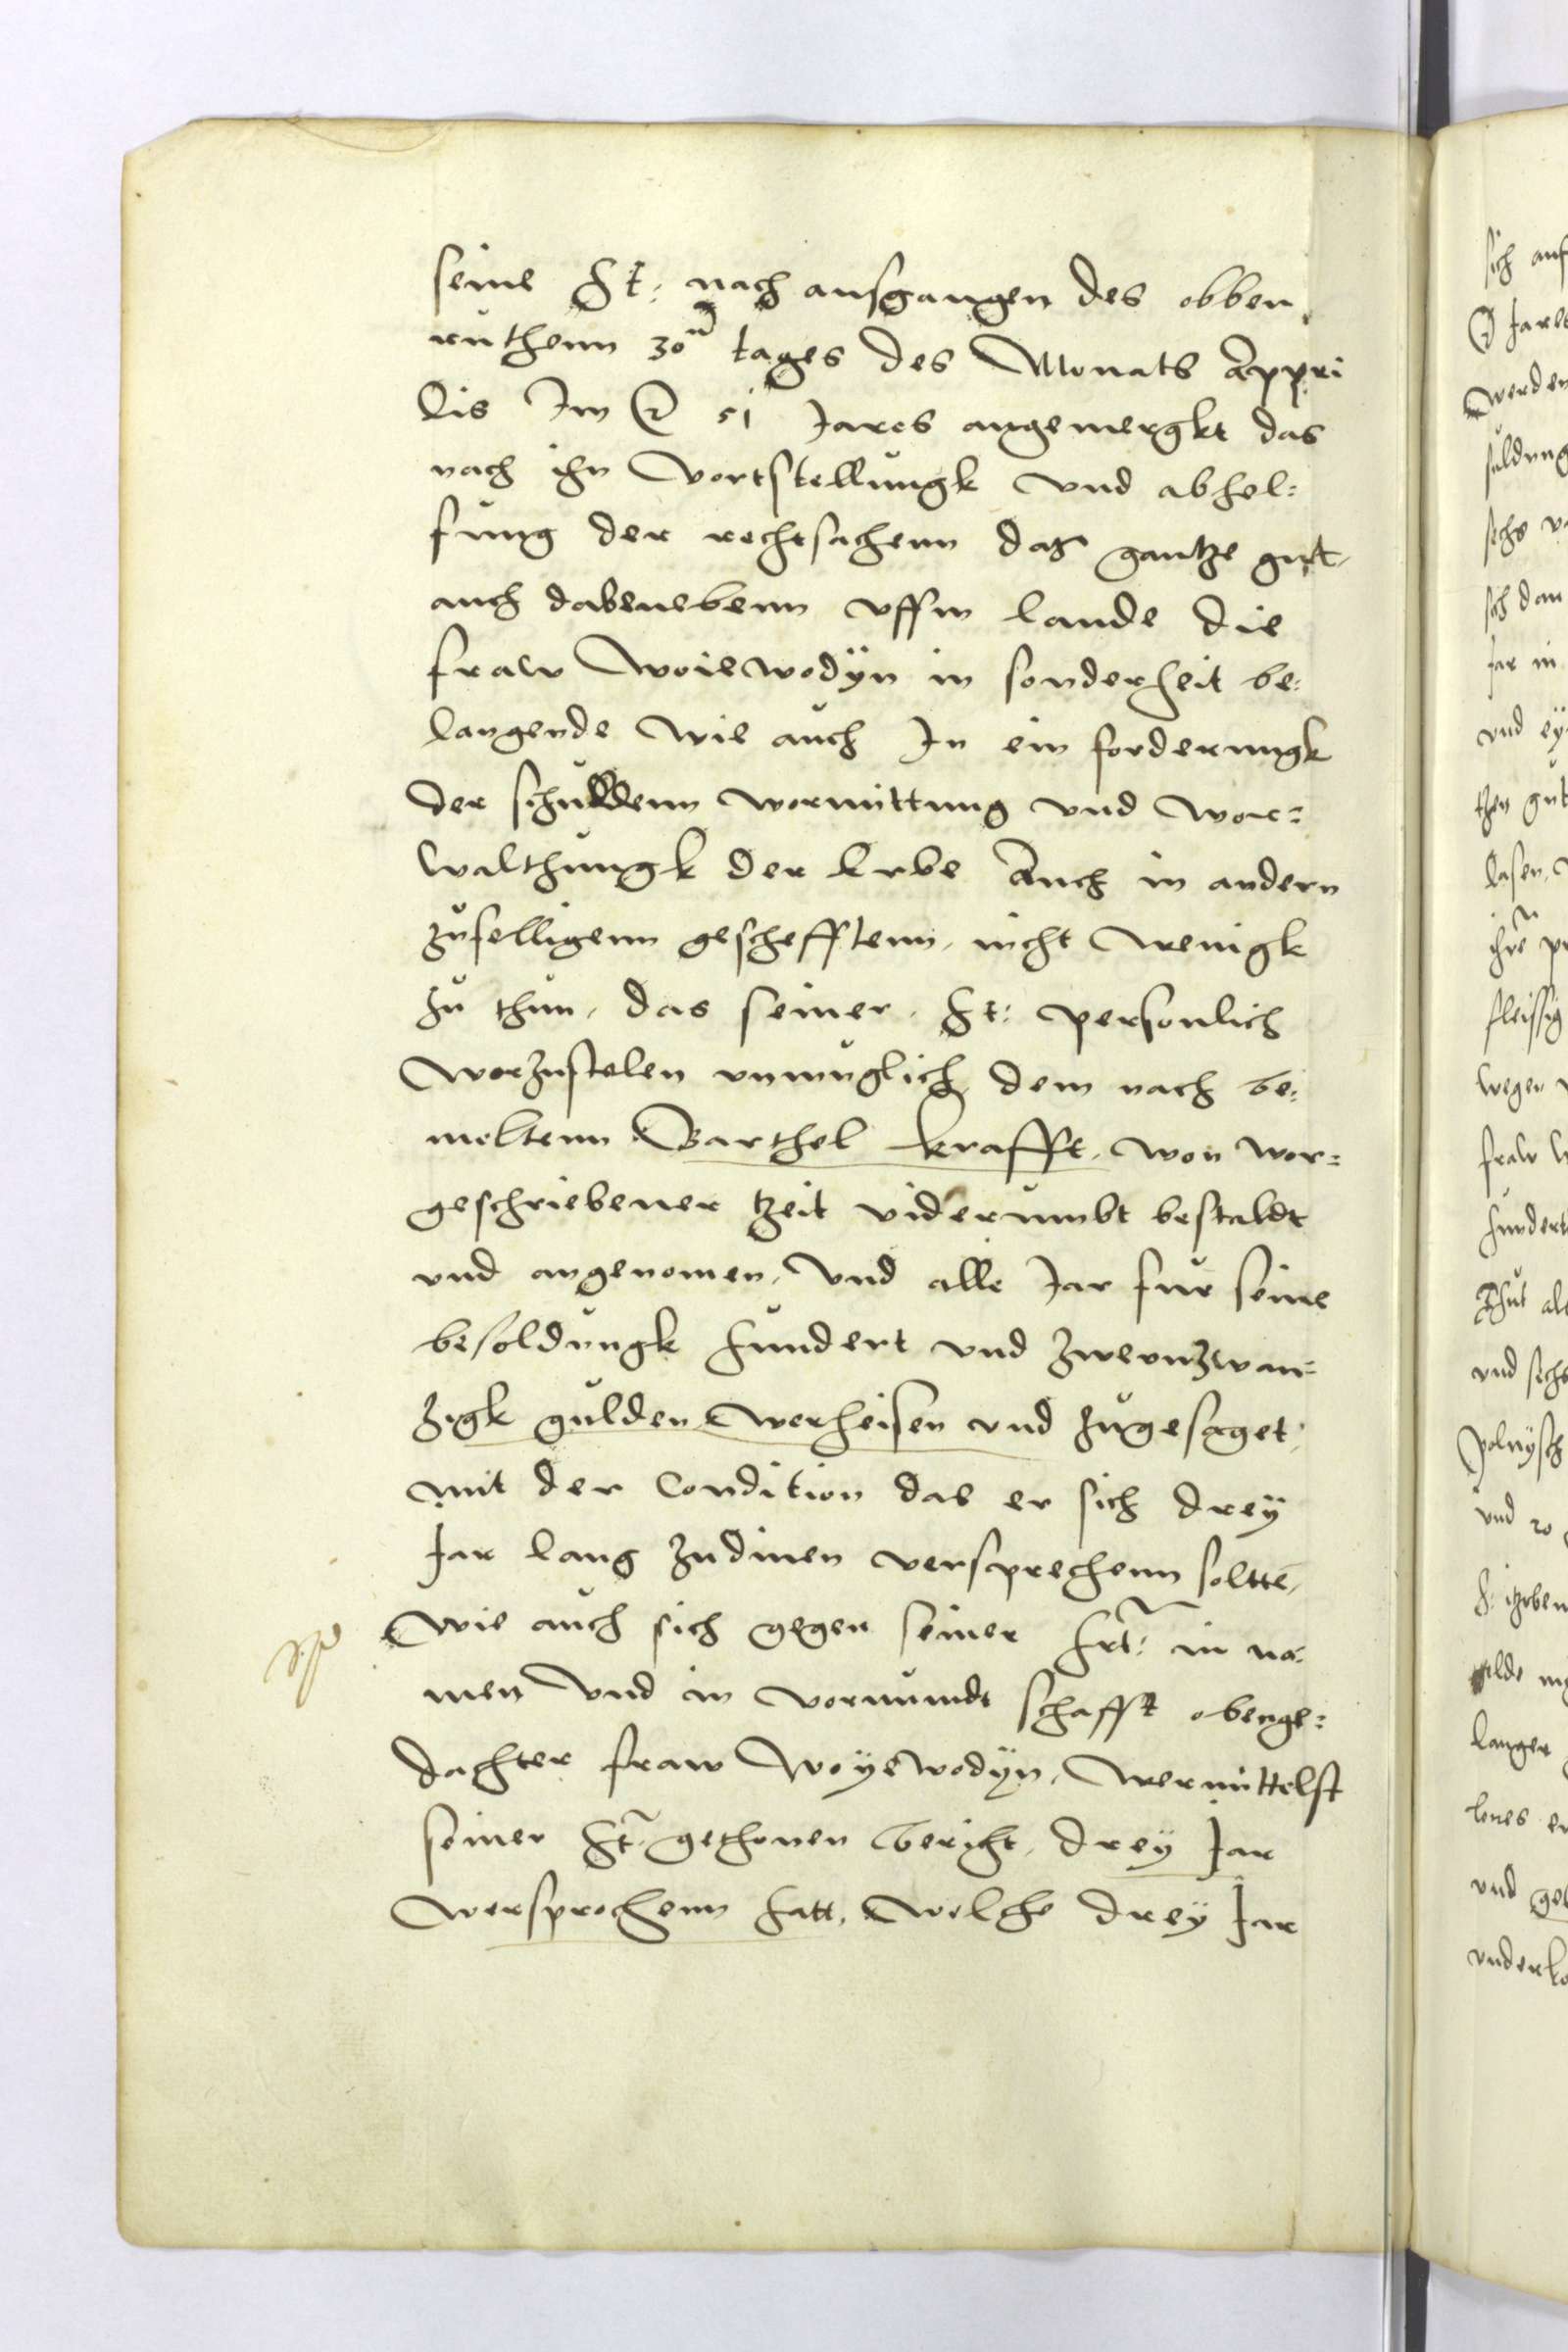 seine Ht: nach ausgangen des obben
ruthenn 30 tages des Monats Appri
lis Im 51 Jares angemergkt das
nach ihn Vortstellungk vnd abhel=
fung der rechtsachenn das gantze gutt,
auch dabenebenn vffm lande die
fraw Woiewodÿn in sonderheit be:
langende wie auch In ein forderungk
der schuldenn wormittung vnd wor=
walthungk der Erbe Auch in andern
zufelligenn geschefftenn, nicht wenigk
zu thun, das seiner Ht: personlich
worzustelen vnmuglich, dem nach be:
meltenn Barthel krafft, won wor=
geschriebener tzeit viderumbt bestaldt
vnd angenomen, Vnd alle Jar fur seine
besoldungk hundert vnd zwenzwan=
zigk gulden werheisen vnd zugesaget,
mit der Condition das er sich dreÿ
Jar lang zudinen versprechenn soltte,
wie auch sich gegen seiner Hrt: in na=
men Vnd in vormundt schafft obenge=
dachter fraw Woÿewodÿn, wermittelst
seiner Ht: gethonen bericht, dreÿ Jar
wersprochenn hatt, welche dreÿ Jar
sich auf
Jares
werden
soldung
sechs
sich dan
Jar in
vnd
then gut
lasen,
ihre
fleissig
wegen
fraw
hundert
Thut als
vnd sechs
polnÿsch
vnd 20
langer
vnd